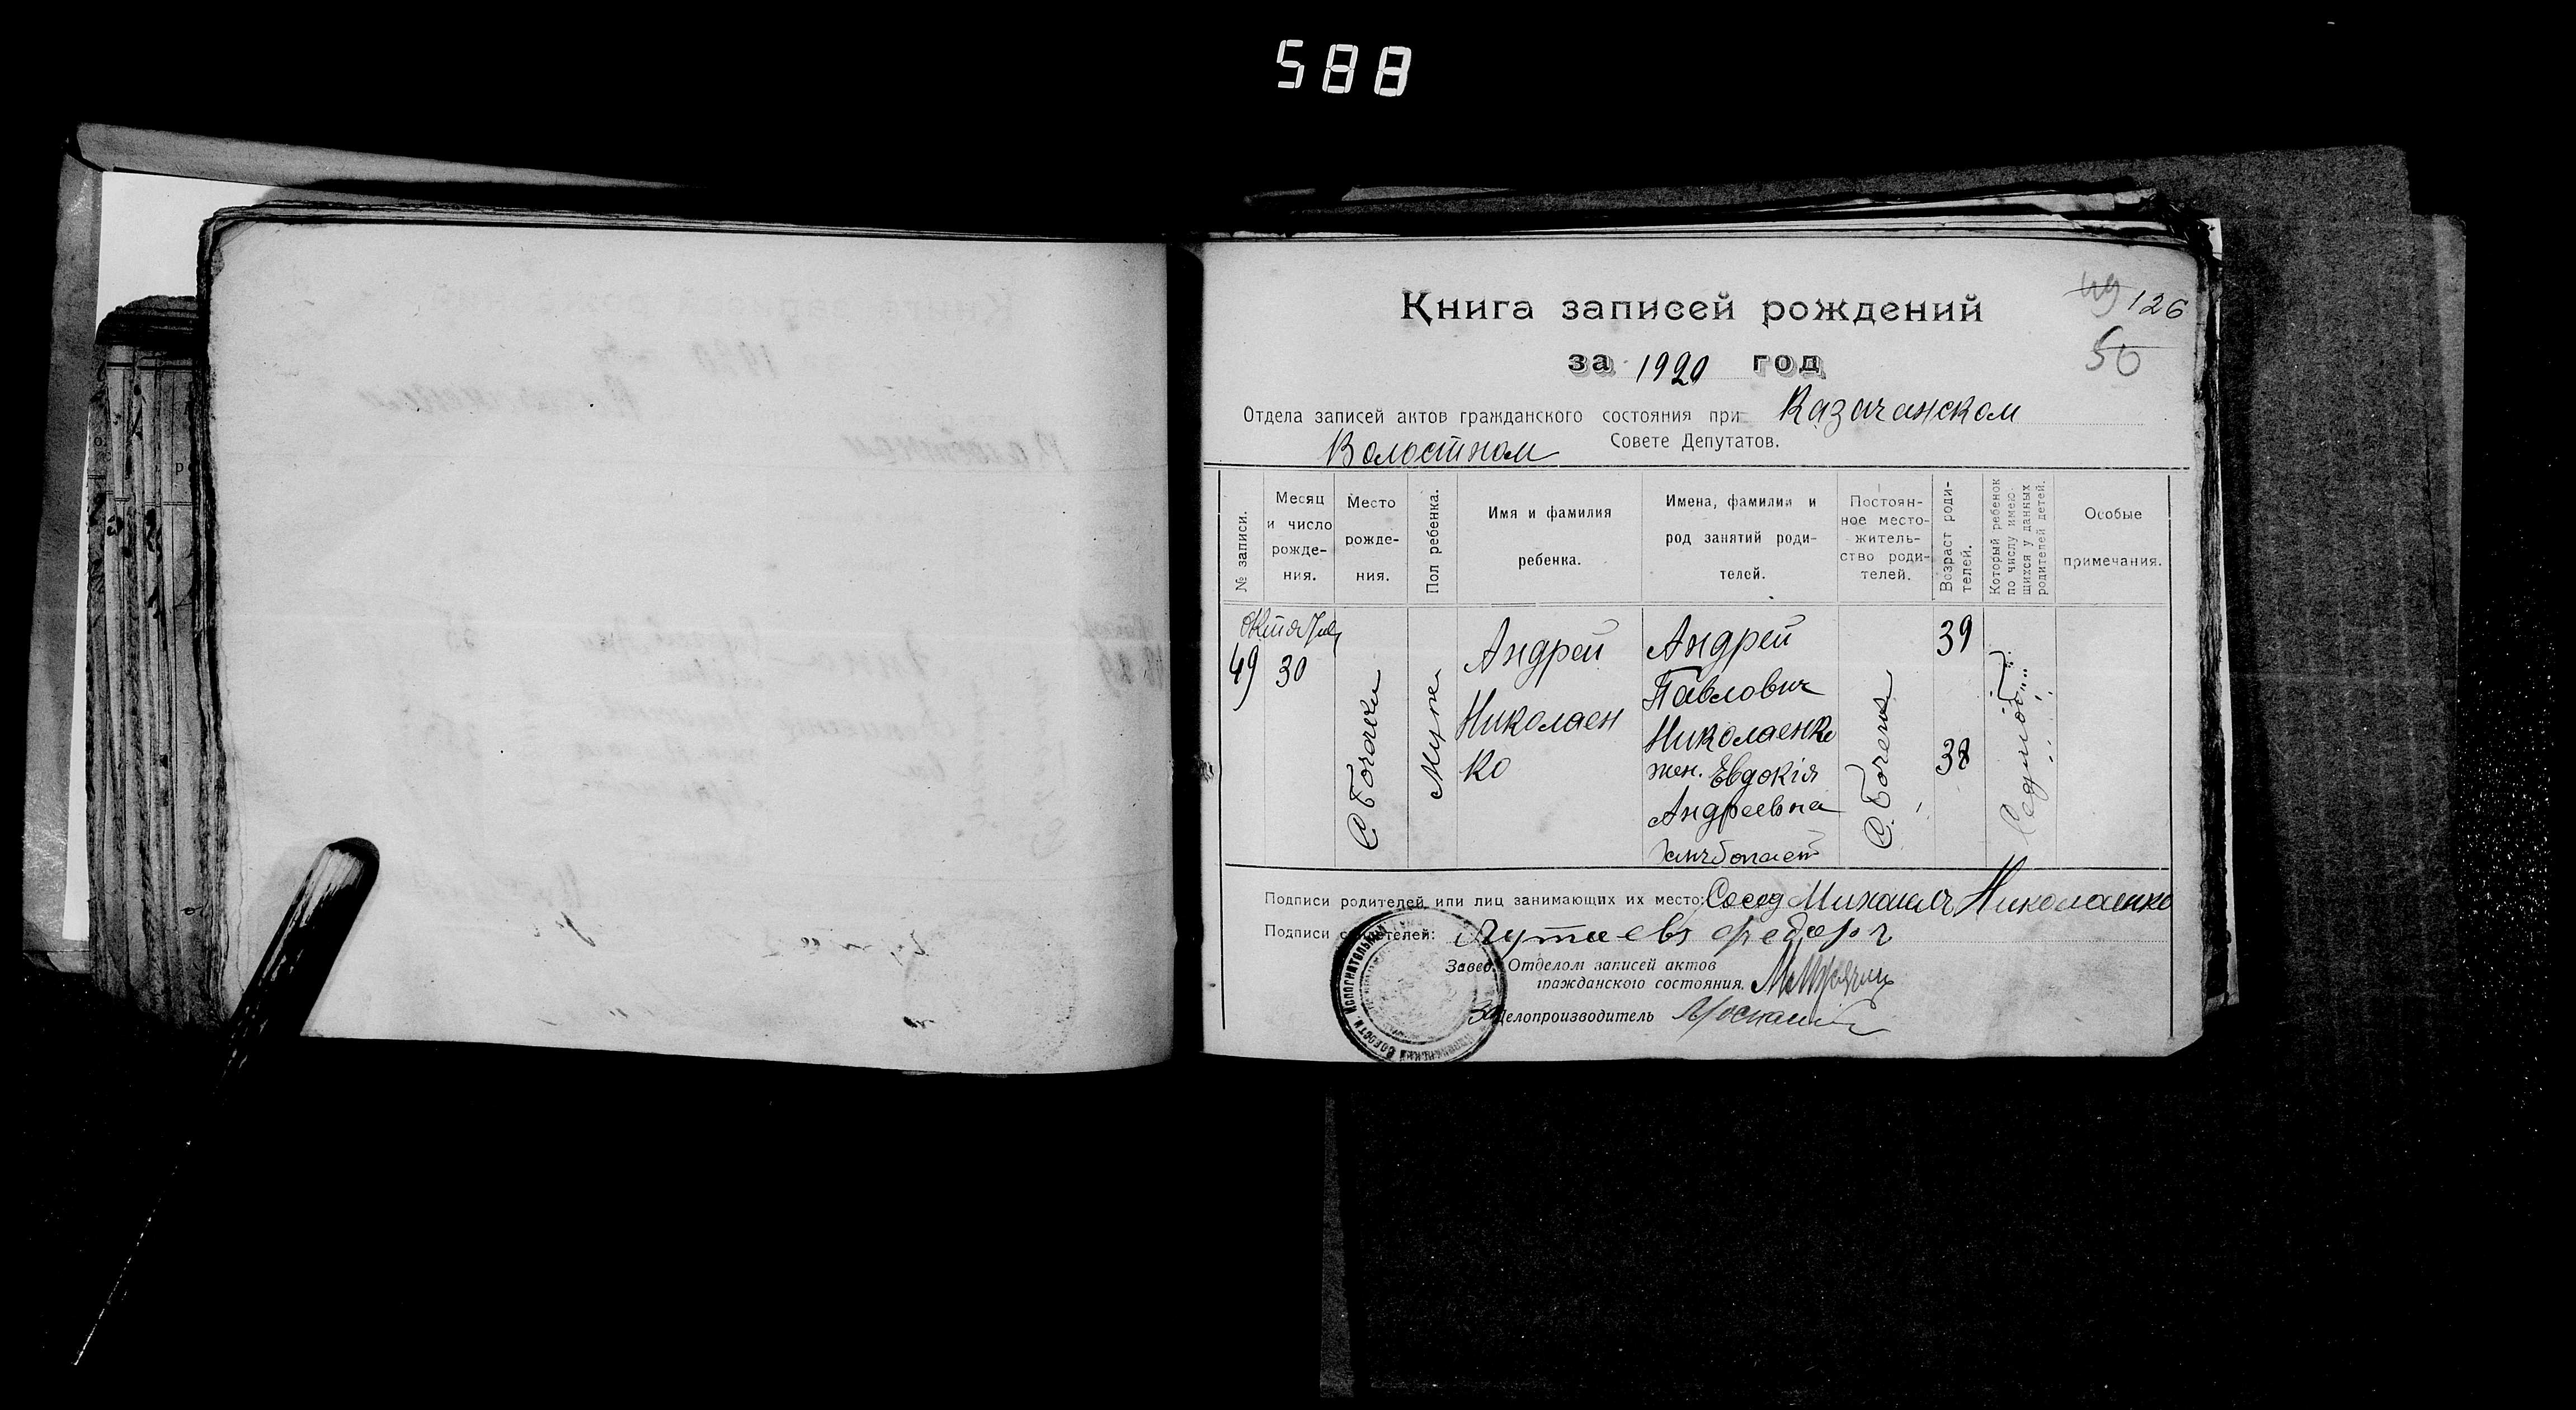 588
49 126
50
Книга записей рождений
за 1920 год
Отдела записей актов гражданского состояния при Казачанском
Волостном Совете Депутатов.
№ записи.
Месяц и число рожде-ния.
Место рожде-ния.
Пол ребенка.
Имя и фамилия ребенка.
Имена, фамилии и род занятий роди-телей.
Постоян-ное место-житель-ство роди-телей.
Возраст роди-телей.
Который ребенок по числу имею-щихся у данных родителей детей.
Особые примечания.
Октября
49 30
С.
Муж.
Андрей
Николаен
ко
Андрей
Павлович
Николаенко
жен. Евдокія
Андреевна
С.
39
38
Седьмой
Подписи родителей или лиц занимающих их место: Сосед Михаилъ Николаенко
Подписи свидетелей:
Завед. Отделом записей актов
гражданского состояния.
За Делопроизводитель